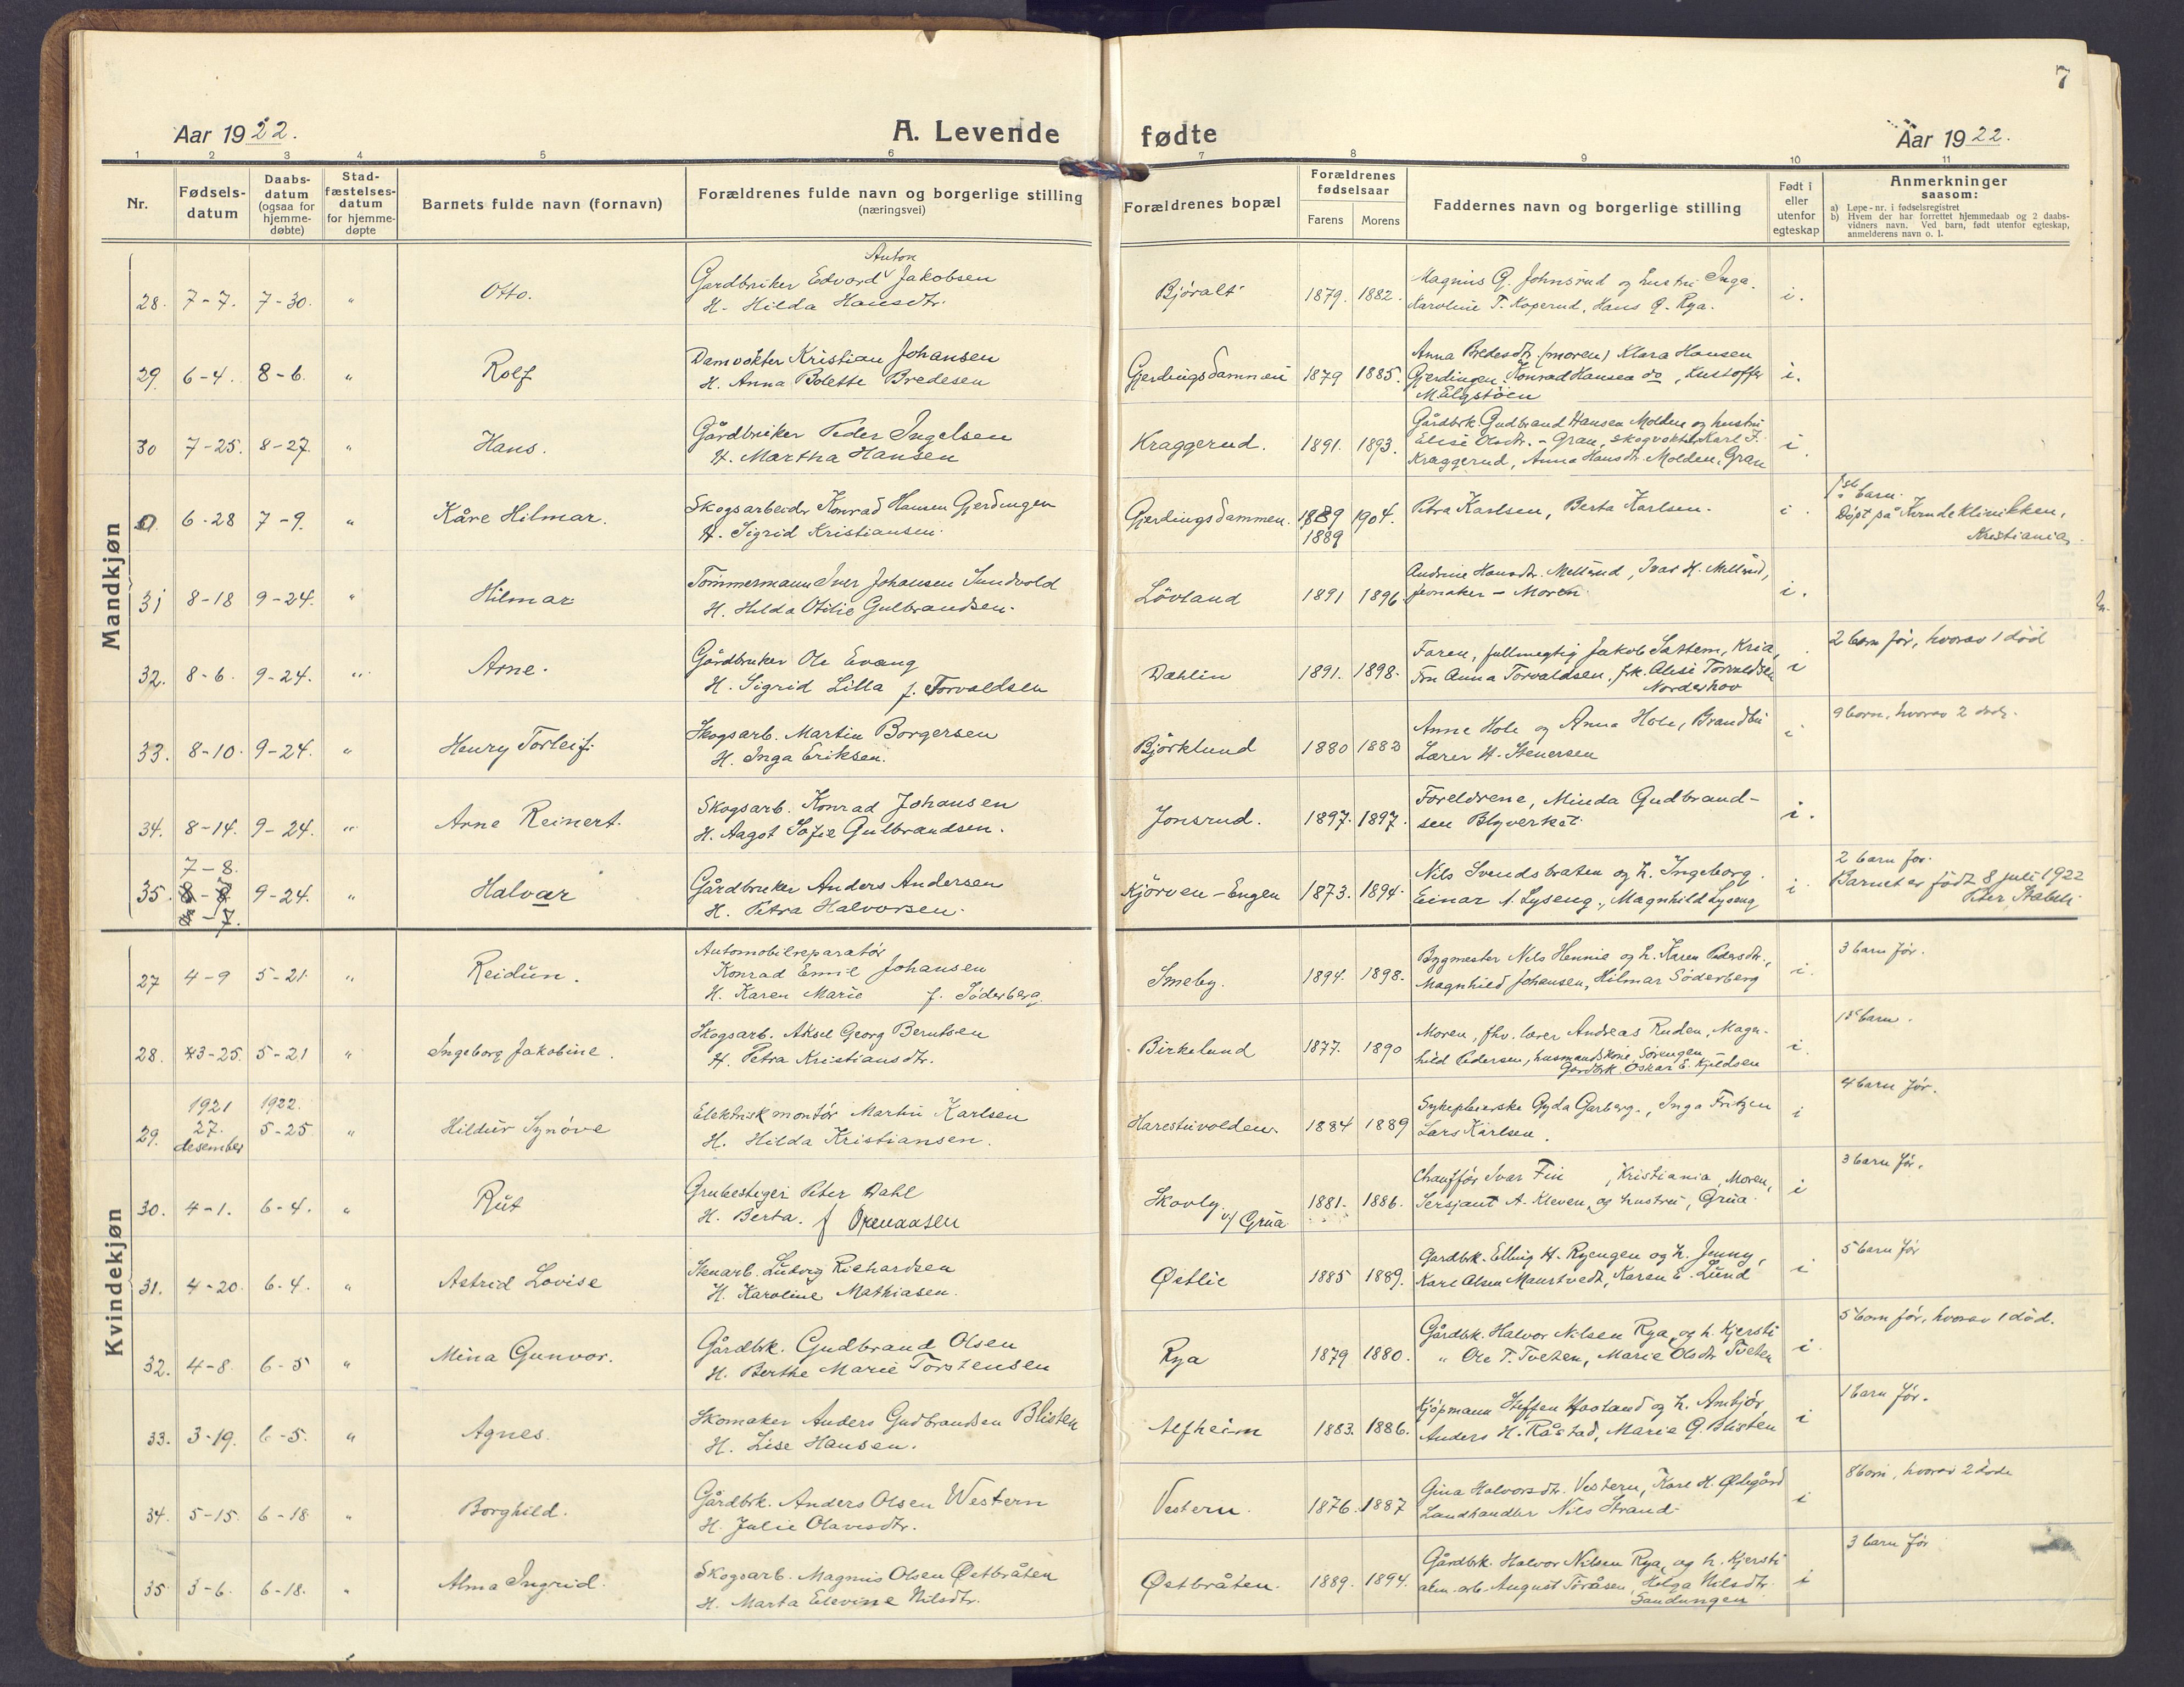 7
Aar 1922.
A. Levende
fødte
Aar 1922.
1 2 3 4 5 6 7 8 9 10 11
Nr.
Fødsels-
datum
Daabs-
datum
(ogsaa for
hjemme-
døbte)
Stad-
fæstelses-
datum
for hjemme-
døpte
Barnets fulde navn (fornavn)
Forældrenes fulde navn og borgerlige stilling
(næringsvei)
Forældrenes bopæl
Forældrenes
fødselsaar
Farens Morens
Faddernes navn og borgerlige stilling
Født i
eller
utenfor
egteskap
Anmerkninger
saasom:
a) Løpe-nr. i fødselsregistret
b) Hvem der har forrettet hjemmedaab og 2 daabs-
vidners navn. Ved barn, født utenfor egteskap,
anmelderens navn o. l.
Mandkjøn
28. 7-7. 7-30. " Otto.
Gardbruker Edvard Anton Jakobsen
H. Hilda Hansdtr.
Bjøralt 1879. 1882.
Magnus G. Johnsrud og hustru Inga.
Karoline T. Koperud, Hans G. Rya.
i.
29. 6-4. 8-6. " Rolf
Damvokter Kristian Johansen
H. Anna Bolette Bredesen
Gjerdingsdammen 1879 1885.
Anna Bredesdtr. (moren) Klara Hansen
Gjerdingen. Konrad Hansen do, Kristoffer
M Elgstøen
i.
30 7-25. 8-27. " Hans.
Gårdbruker Peder Ingelsen
H. Martha Hansen
Kraggerud. 1891. 1893.
Gårdbrk. Gudbrand Hansen Molden og hustru
Elise Olsdtr. - Gran, skogvokter Karl J.
Kraggerud, Anna Hansdtr. Molden, Gran
i.
0 6-28 7-9. " Kåre Hilmar.
Skogsarbeider Konrad Hansen Gjerdingen
H. Sigrid Kristiansen.
Gjerdingsdammen. 1889 1904.
1889
Petra Karlsen, Berta Karlsen.
i.
1ste barn.
Døpt på Kvindeklinikken,
Kristiania.
31 8-18 9-24. " Hilmar
Tømmermann Iver Johansen Sundvold
H. Hilda Otilie Gulbrandsen.
Løvland 1891 1896
Andrine Hansdtr. Mellerud, Ivar H. Mellerud,
Jevnaker - Moren
i.
32. 8-6. 9-24. " Arne.
Gårdbruker Ole Evang
H. Sigrid Lilla f. Torvaldsen
Dahlin 1891. 1898.
Faren, fullmegtig Jakob Sattem, Kria,
Fru Anna Torvaldsen, frk. Alise Torvaldsen
Norderhov
i
2 barn før, hvorav 1 død
33. 8-10. 9-24. " Henry Torleif.
Skogsarb. Martin Borgersen
H. Inga Eriksen.
Bjørklund 1880 1882
Anne Hole og Anna Hole, Brandbu
Lærer H. Stenersen
i
9 born, hvorav 2 døde.
34. 8-14. 9-24. " Arne Reinert.
Skogsarb. Konrad Johansen
H. Aagot Sofie Gulbrandsen.
Jonsrud. 1897. 1897.
Foreldrene, Minda Gudbrand-
sen Blyverket
i.
7-8.
35. 9-24. " Halvar
Gårdbruker Anders Andersen
H. Petra Halvorsen.
Kjørven-Engen 1873. 1894.
Nils Svendsbraten og h. Ingeborg.
Einar A. Lyseng., Magnhild Lyseng
i.
2 barn før.
Barnet er født 8 juli 1922
Peter Stabell
Kvindekjøn
27 4-9 5-21 " Reidun.
Automobilreparatør
Konrad Emil Johansen
H. Karen Marie f. Søderberg.
Smeby. 1894. 1898.
Bygmester Nils Hennie og h. Karen Pedersdtr.,
Magnhild Johansen, Hilmar Söderberg
i.
3 barn før.
28. 3-25. 5-21 " Ingeborg Jakobine.
Skogsarb. Aksel Georg Berntsen
H. Petra Kristiansdtr.
Birkelund 1877. 1890
Moren, fhv. lærer Andreas Ruden, Magn-
hild Pedersen, husmandskone, Sørengen
Gardbrk. Oskar E. Kjeldsen
i.
1ste barn.
29. 1921 27. desember 1922. 5-25 " Hildur Synøve
Elektriskmontør Martin Karlsen
H. Hilda Kristiansen.
Harestuvolden. 1884 1889
Sykepleierske Gyda Garberg., Inga Fritzen
Lars Karlsen.
i
4 barn før.
30. 4-1. 6-4. " Rut
Grubestiger Peter Dahl
H. Berta. f
Skovly v/ Grua 1881. 1886.
Chauffør Ivar Fin, Kristiania, Moren,
Sersjant A. Kleven, og hustru, Grua.
i
3 barn før.
31. 4-20. 6-4. " Astrid Lovise
Stenarb. Ludvig Richardsen
H. Karoline Mathiasen.
Østlie 1885 1889.
Gardbrk. Elling H. Ryengen og h. Jenny,
Karl Olsen Maurtvedt, Karen E. Lund
i
5 barn før
32. 4-8. 6-5 " Mina Gunvor.
Gårdbrk. Gudbrand Olsen
H. Berthe Marie Torstensen
Rya 1879 1880.
Gårdbrk. Halvor Nilsen Rya, og h. Kjersti
" Ole T. Tveten, Marie Olsdtr Tveten
i.
5 born før, hvorav 1 død.
33. 3-19. 6-5. " Agnes.
Skomaker Anders Gudbrandsen Blisten
H. Lise Hansen.
Alfheim 1883. 1886.
Kjøpmann Steffen Hovland og h. Ambjør,
Anders H. Råstad, Marie G. Blisten
i
1 barn før.
34. 5-15. 6-18 " Borghild.
Gårdbrk. Anders Olsen Western
H. Julie Olavesdtr.
Vestern. 1876. 1887
Gina Halvorsdtr. Vestern, Karl H. Ødegård
Landhandler Nils Strand
i
8 born, hvorav 2 døde
35 3-6. 6-18. " Alma Ingrid.
Skogsarb. Magnus Olsen Østbråten
H. Marta Elevine Nilsdtr.
Østbråten. 1889. 1894.
Gårdbrk. Halvor Nilsen Rya, og h. Kjersti
alm. arb. August Toråsen, Helga Nilsdtr.
Sandungen
i
3 barn før